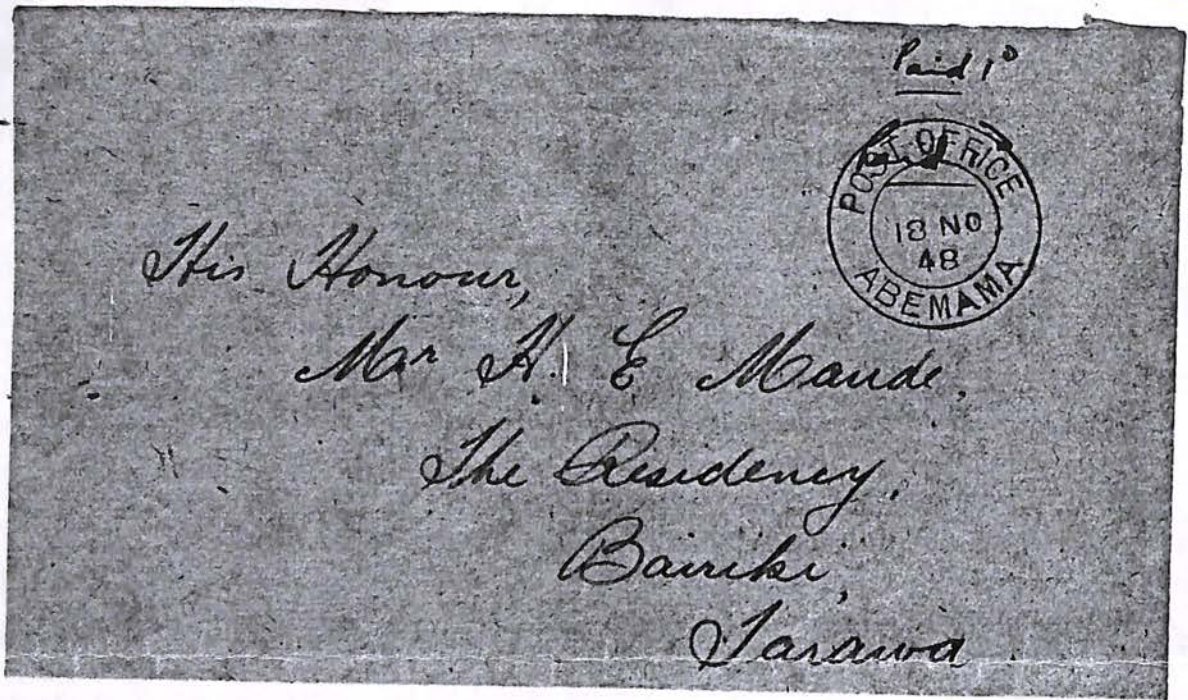 Paid 1ᴰ
POST OFFICE
18 NO
48
ABEMAMA
His Honour,
Mr H. E Maude.
The Residency,
Bairiki,
Tarawa